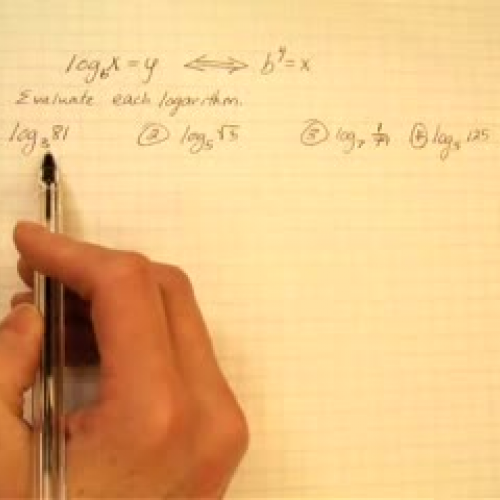 log_b x = y ⟺ b^y = x
Evaluate each logarithm.
log_3 81 ② log_5 √5 ③ log_7 log_5 125